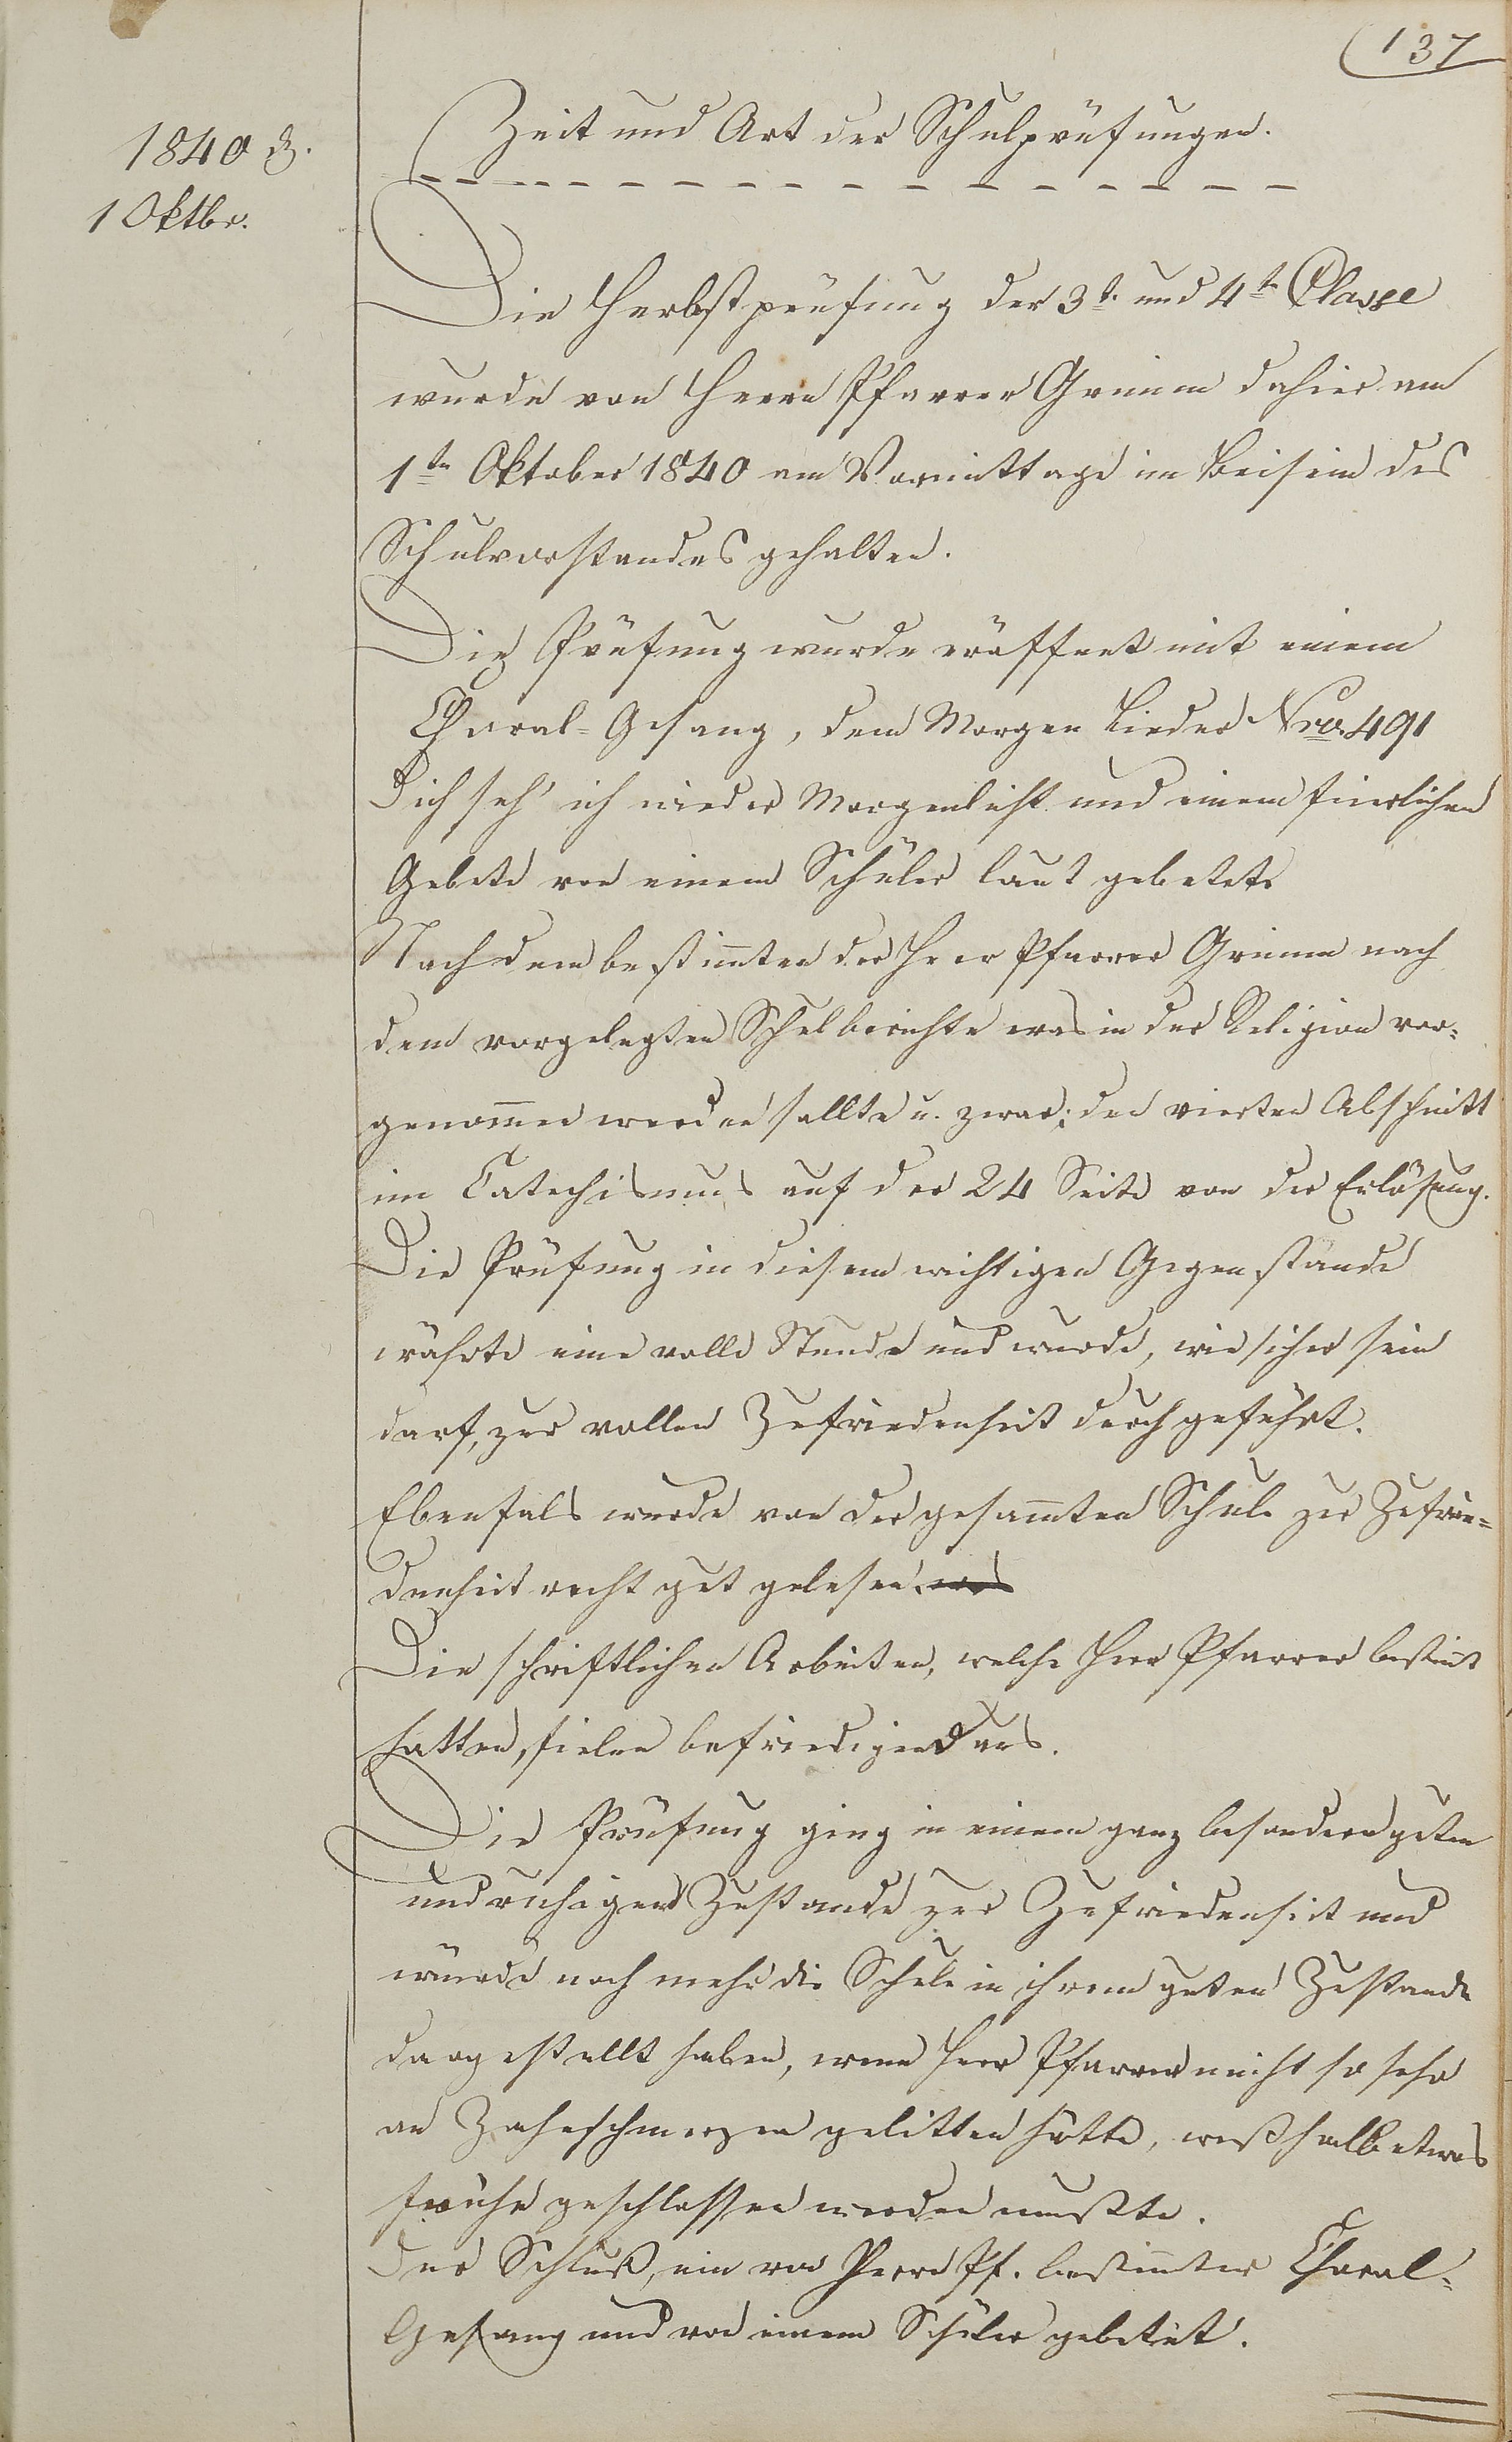 137
1840 d.
1 Oktbr.
Zeit und Art der Schulprüfungen.
Die Herbstprüfung der 3t. und 4t. Classe
wurde von Herrn Pfarrer Grimm dahier am
1ten Oktober 1840 am Vormittage im Beisein des
Schulvorstandes gehalten.
Die Prüfung wurde eröffnet mit einem
Choral-Gesang, dem Morgen Lieder Nro. 491
Dich seh' ich wieder Morgenlicht und einem feierlichen
Gebete von einem Schüler laut gebetet.
Nachdem bestimten der Herr Pfarrer Grimm nach
dem vorgelegten Schulberichte was in der Religion vor-
genommen werden sollte u. zwar; den vierten Abschnitt
im Catechismus auf der 24 Seite von der Erlösung.
Die Prüfung in diesem wichtigen Gegenstande
währte eine volle Stunde und wurde, wie sicher sein
darf, zur vollen Zufriedenheit durchgeführt.
Ebenfals wurde von der gesammten Schule zur Zufrie-
denheit recht gut gelesen.
Die schriftlichen Arbeiten, welche Herr Pfarrer bestimt
hatten, fielen befriedigend aus.
Die Prüfung ging in einem ganz besondern guten
und ruhigen Zustande zur Zufriedenheit und
würde noch mehr die Schule in ihrem guten Zustande
dargestellt haben, wenn Herr Pfarrer nicht so sehr
an Zahnschmerzen gelitten hätte, weßhalb etwas
frühe geschlossen werden mußte.
Der Schluß, ein von Herrn Pf. bestimmter Choral-
Gesang und von einem Schüler gebetet.